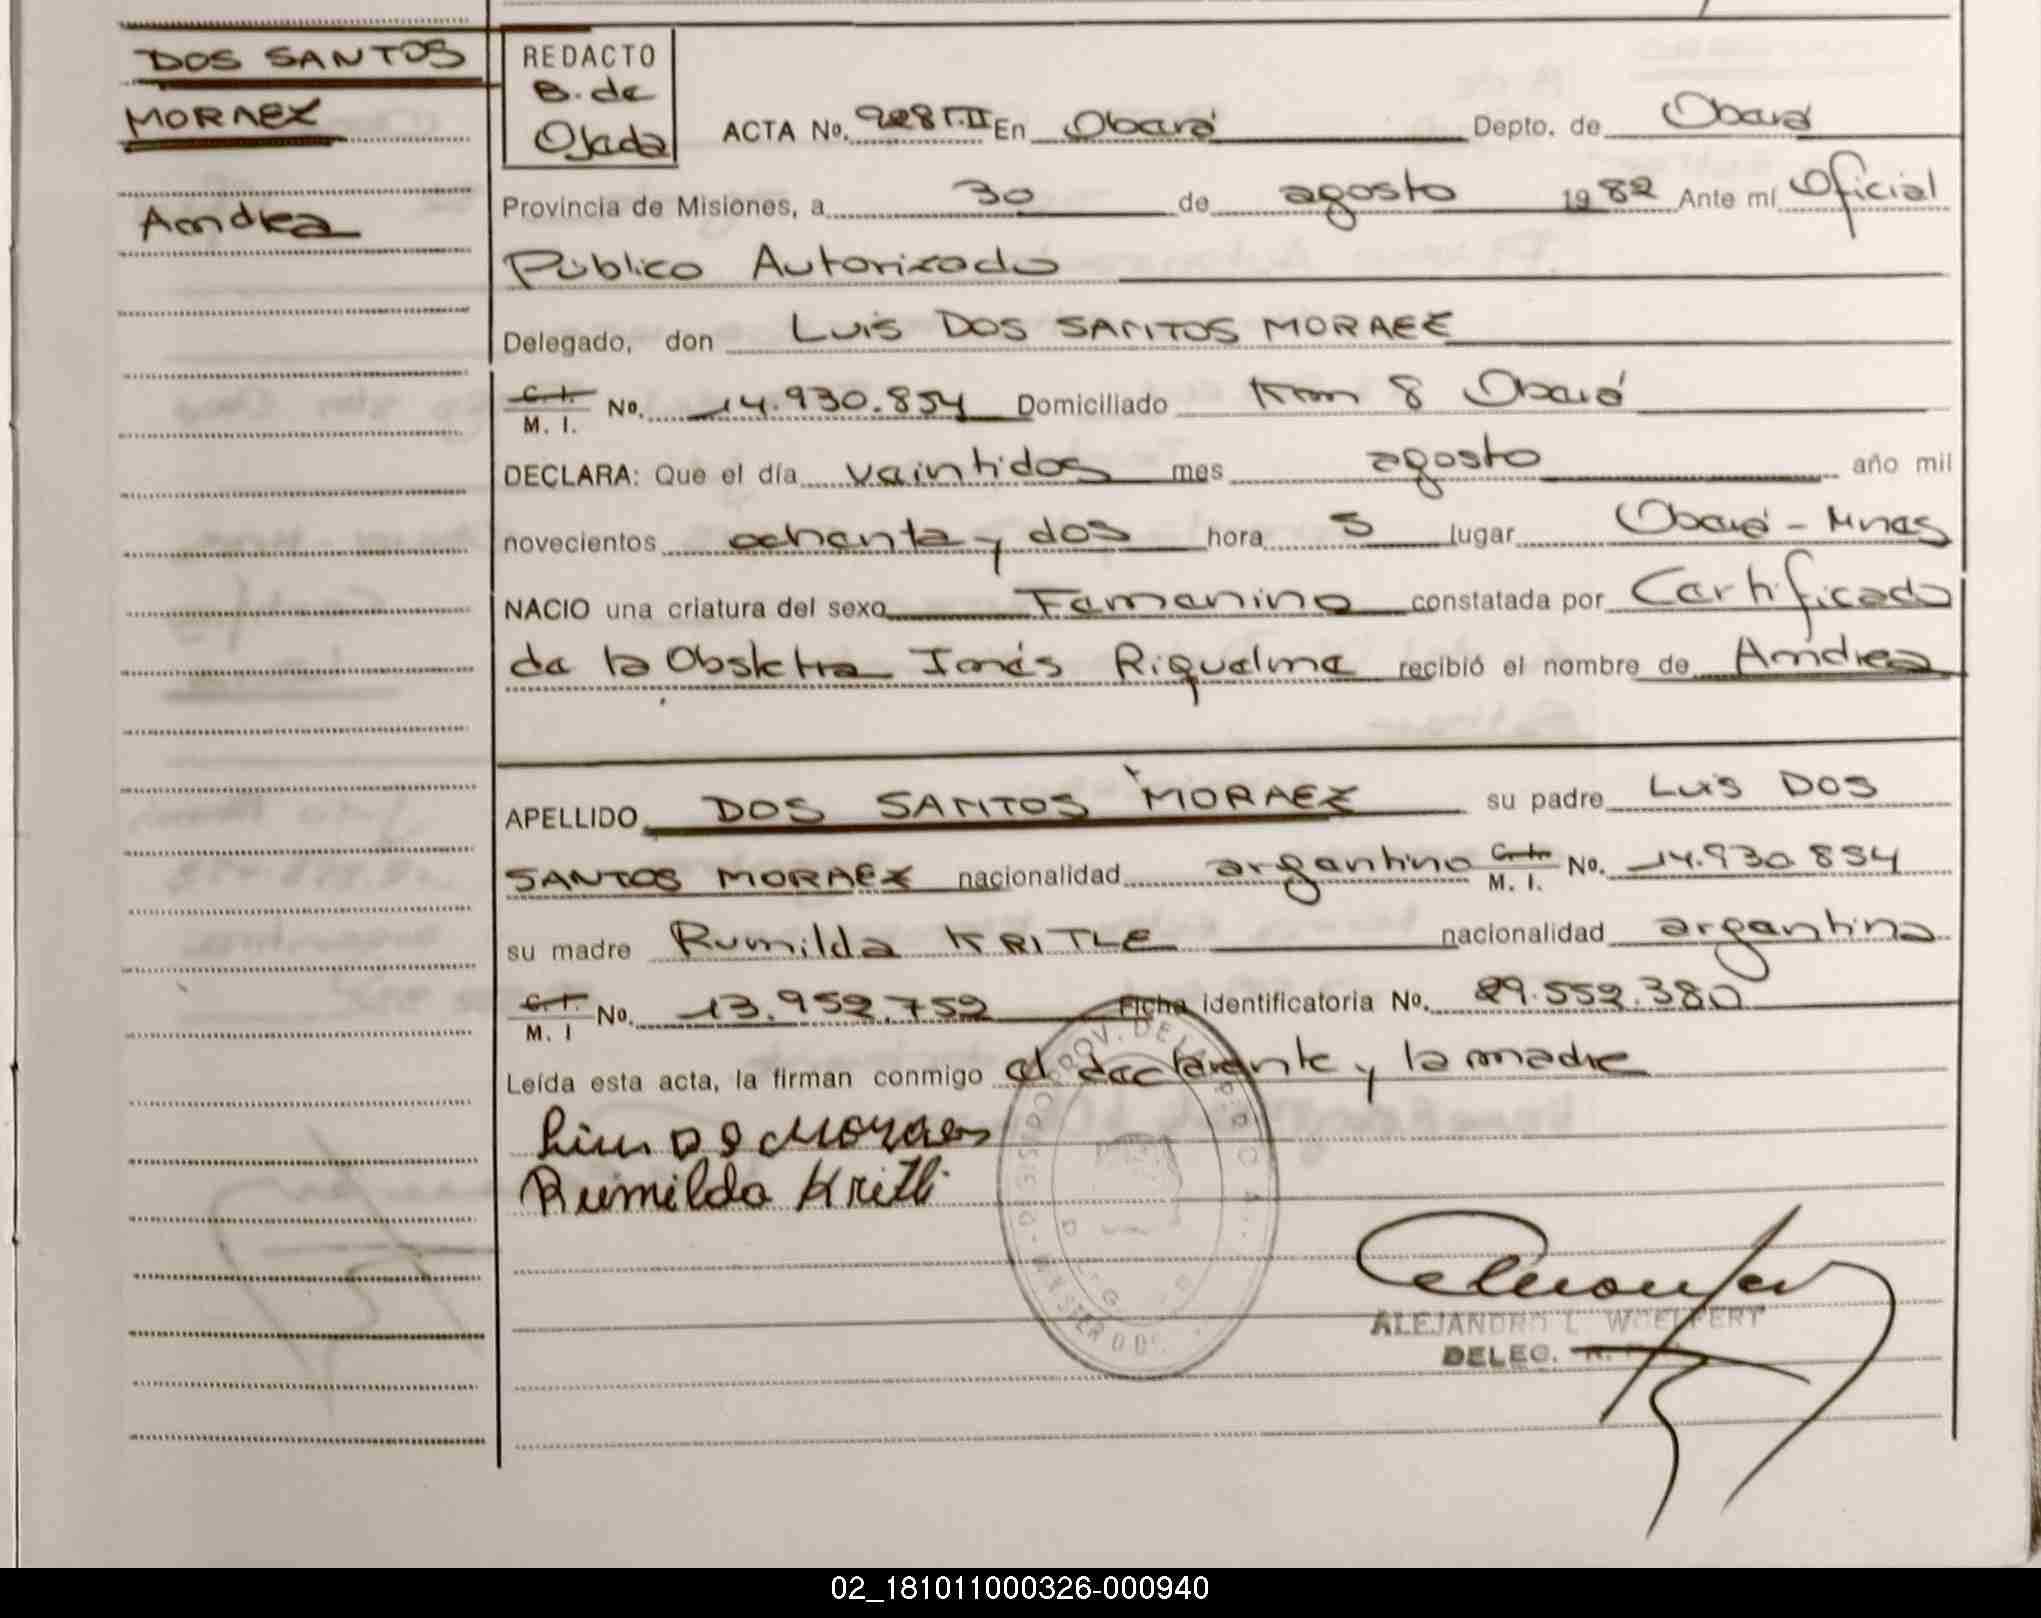 DOS SANTOS
MORAEZ
Andrea
REDACTO
B. de
Ojeda
ACTA No. 928 T.II En Oberá Depto. de Oberá
Provincia de Misiones, a 30 de agosto 1982 Ante mí Oficial
Público Autorizado
Delegado, don Luis DOS SANTOS MORAEZ
C. I. M. I. No. 14.930.854 Domiciliado Km 8 Oberá
DECLARA: Que el día veintidos mes agosto año mil
novecientos ochenta y dos hora 5 lugar Oberá - Mnes
NACIO una criatura del sexo Femenino constatada por Certificado
de la Obstetra Inés Riquelme recibió el nombre de Andrea
APELLIDO DOS SANTOS MORAEZ su padre Luis DOS
SANTOS MORAEZ nacionalidad argentino C. I. M. I. No. 14.930.854
su madre Rumilda KRITLE nacionalidad argentina
C. I. M. I No. 13.952.752 Ficha identificatoria No. 29.552.380
Leída esta acta, la firman conmigo el declarante y la madre
Luis D S Moraes
Rumilda Kritli
ALEJANDRO L. WOELFERT
DELEG.
02_181011000326-000940